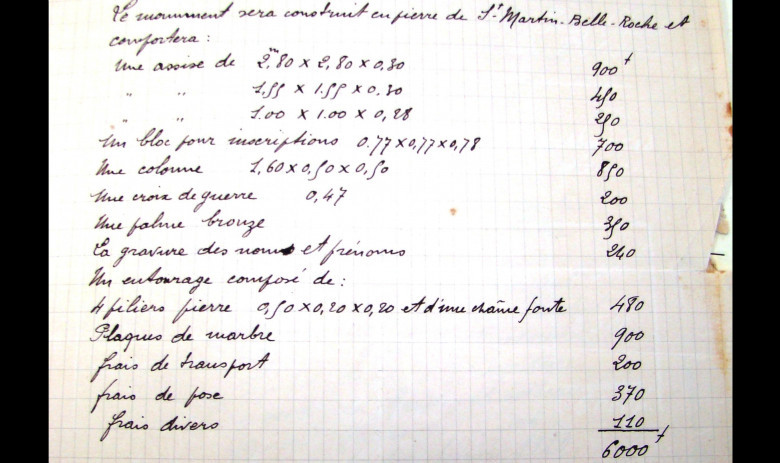 Le monument sera construit en pierre de St Martin-Belle-Roche et
comportera :
Une assise de 2,m80 x 2,80 x 0,30 900f
" " 1,55 x 1.55 x 0,30 450
" " 1.00 x 1.00 x 0,28 250
Un bloc pour inscriptions 0.77 x 0,77 x 0,78 700
Une colonne 1,60 x 0,50 x 0,50 850
Une croix de guerre 0,47 200
Une palme bronze 350
La gravure des noms et prénoms 240
Un entourage composé de :
4 piliers pierre 0,50 x 0,20 x 0,20 et d'une chaîne fonte 480
Plaques de marbre 900
frais de transport 200
frais de pose 370
frais divers 110
6000f